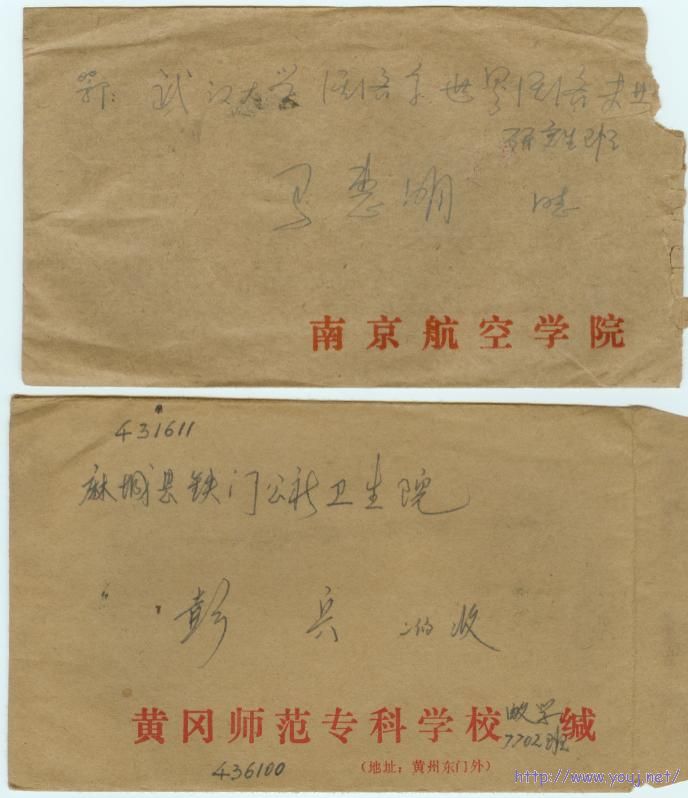 鄂：武汉大学历史系世界历史专业
研究生班
马惠明
南京航空学院
431611
麻城县铁门公社卫生院
彭兵 收
黄冈师范专科学校 数学 缄
7702班
436100 （地址：黄州东门外）
http://www.youj.net/